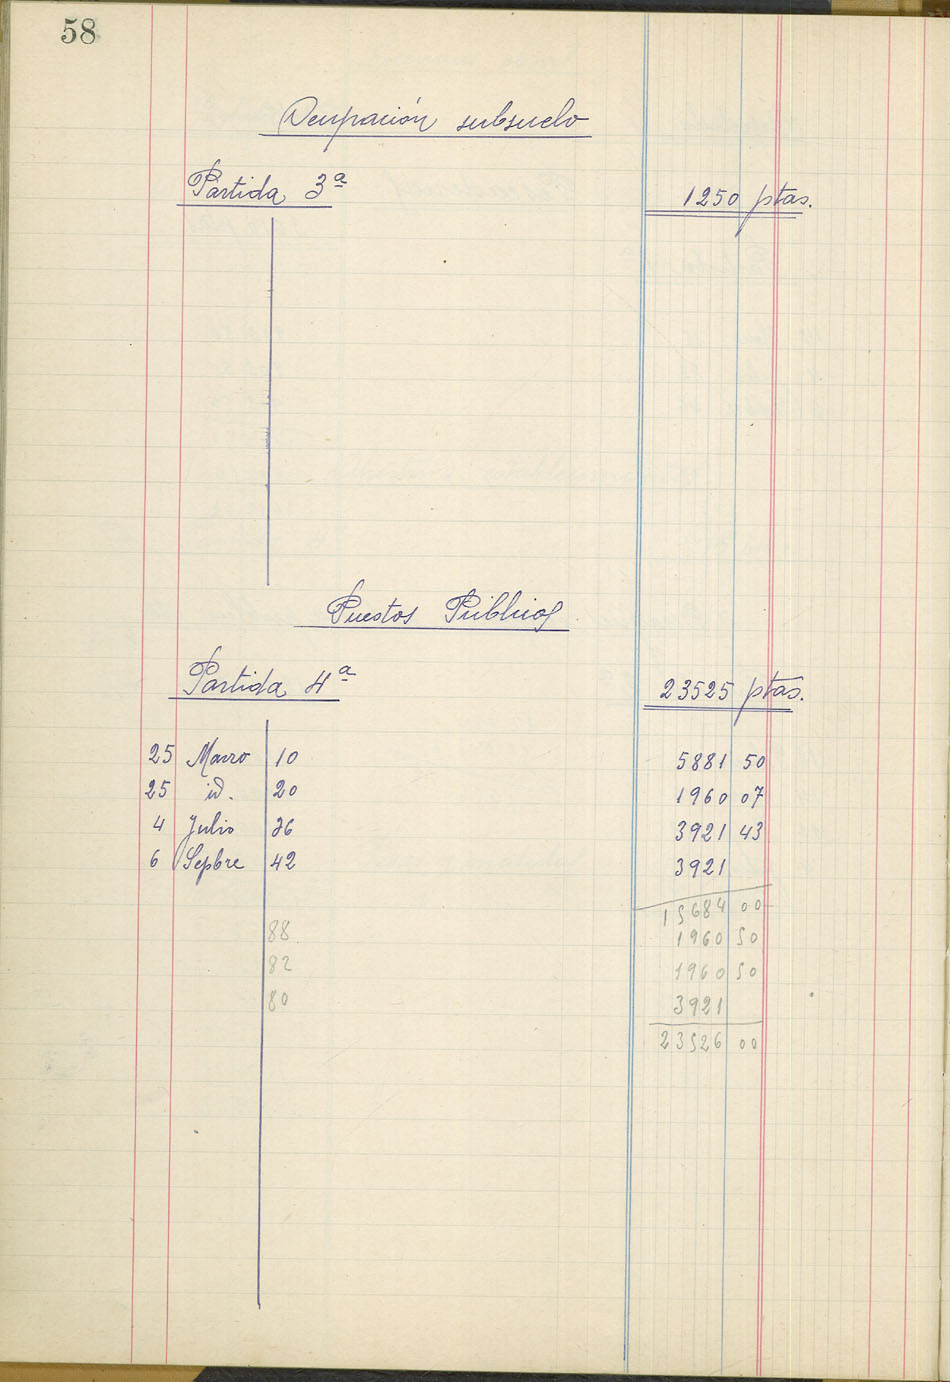 58
Ocupación subsuelo
Partida 3ª 1250 ptas.
Puestos Públicos
Partida 4ª 23525 ptas.
25 Marzo 10 5881 50
25 id. 20 1960 07
4 Julio 26 3921 43
6 Sepbre 42 3921
15684 00
88 1960 50
82 1960 50
80 3921
23526 00